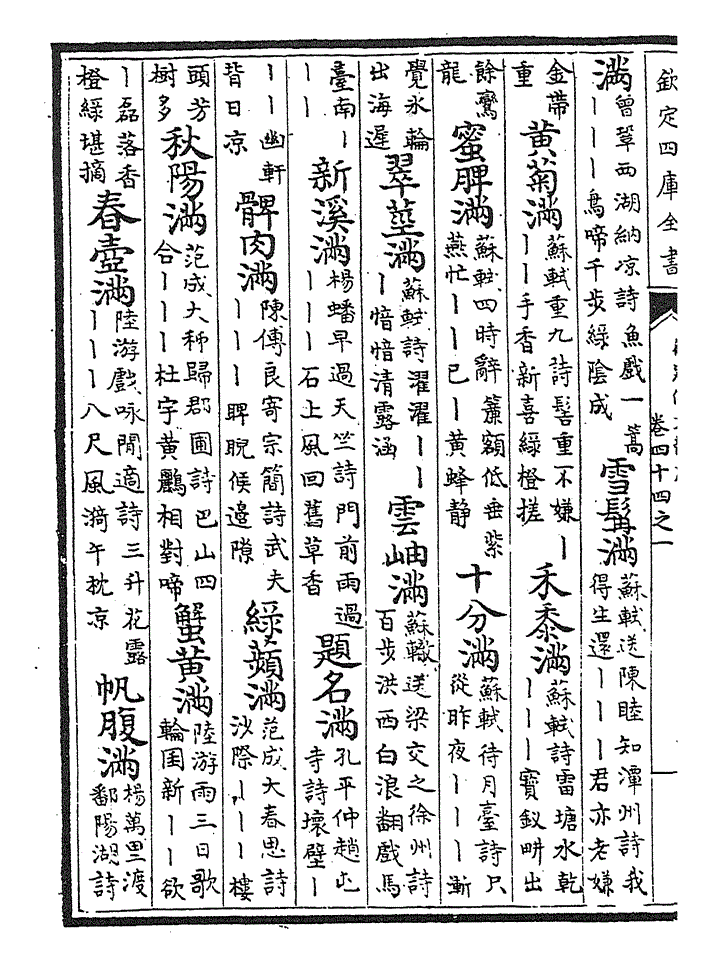 欽定四庫全書
卷四十四之一
滿 曾鞏西湖納凉詩魚戲一篙丨丨丨鳥啼千步緑陰成 雪髯滿 蘇軾送陳睦知潭州詩我得生還丨丨丨君亦老嫌
金帶重 黄菊滿 蘇軾重九詩髻重不嫌丨丨丨手香新喜緑橙搓 禾黍滿 蘇軾詩雷塘水乾丨丨丨寶釵畊出
餘鸞龍 蜜脾滿 蘇軾四時辭簾額低垂紫燕忙丨丨已丨黄蜂静 十分滿 蘇軾待月臺詩只從昨夜丨丨丨漸
覺氷輪出海遲 翠莖滿 蘇軾詩濯濯丨丨丨愔愔清露涵 雲岫滿 蘇轍送梁交之徐州詩百步洪西白浪翻戲馬
臺南丨丨丨 新溪滿 楊蟠早過天竺詩門前雨過丨丨丨石上風回舊草香 題名滿 孔平仲趙屯寺詩壞壁丨
丨丨幽軒昔日凉 髀肉滿 陳傅良寄宗簡詩武夫丨丨丨睥睨候邊隙 緑蘋滿 范成大春思詩沙際丨丨丨樓
頭芳樹多 秋陽滿 范成大種歸郡圃詩巴山四合丨丨丨杜宇黄鸝相對啼 蟹黄滿 陸游雨三日歌輪囷新丨丨欲
丨磊落香橙緑堪摘 春壺滿 陸游戲咏閒適詩三升花露丨丨丨八尺風漪午枕凉 帆腹滿 楊萬里渡鄱陽湖詩